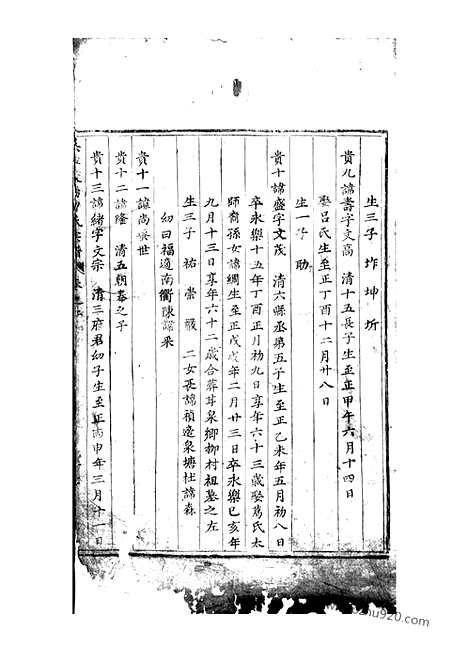 生三子 坼 坤 圻
貴九諱壽字文高 清十五長子生至正甲午六月十四
娶呂氏生至正丁酉十二月廿八日
生一子 助
貴十諱盛字文茂 清六縣丞第五子生至正乙未年五月初八日
卒永樂十五年丁酉正月初九日享年六十三歲娶葛氏太
師裔孫女諱綢生至正戊戌年二月廿三日卒永樂己亥年
九月十三日享年六十二歲合葬茸泉鄉柳村祖墓之左
生三子 祐 崇 二女長諱禎適泉塘杜諱森
幼曰福適南衢陳諱
貴十一諱尚 世
貴十二諱隆 清五朝奉之子
貴十三諱緒字文宗 清三府君幼子生至正丙申年三月十一日
ou920.com